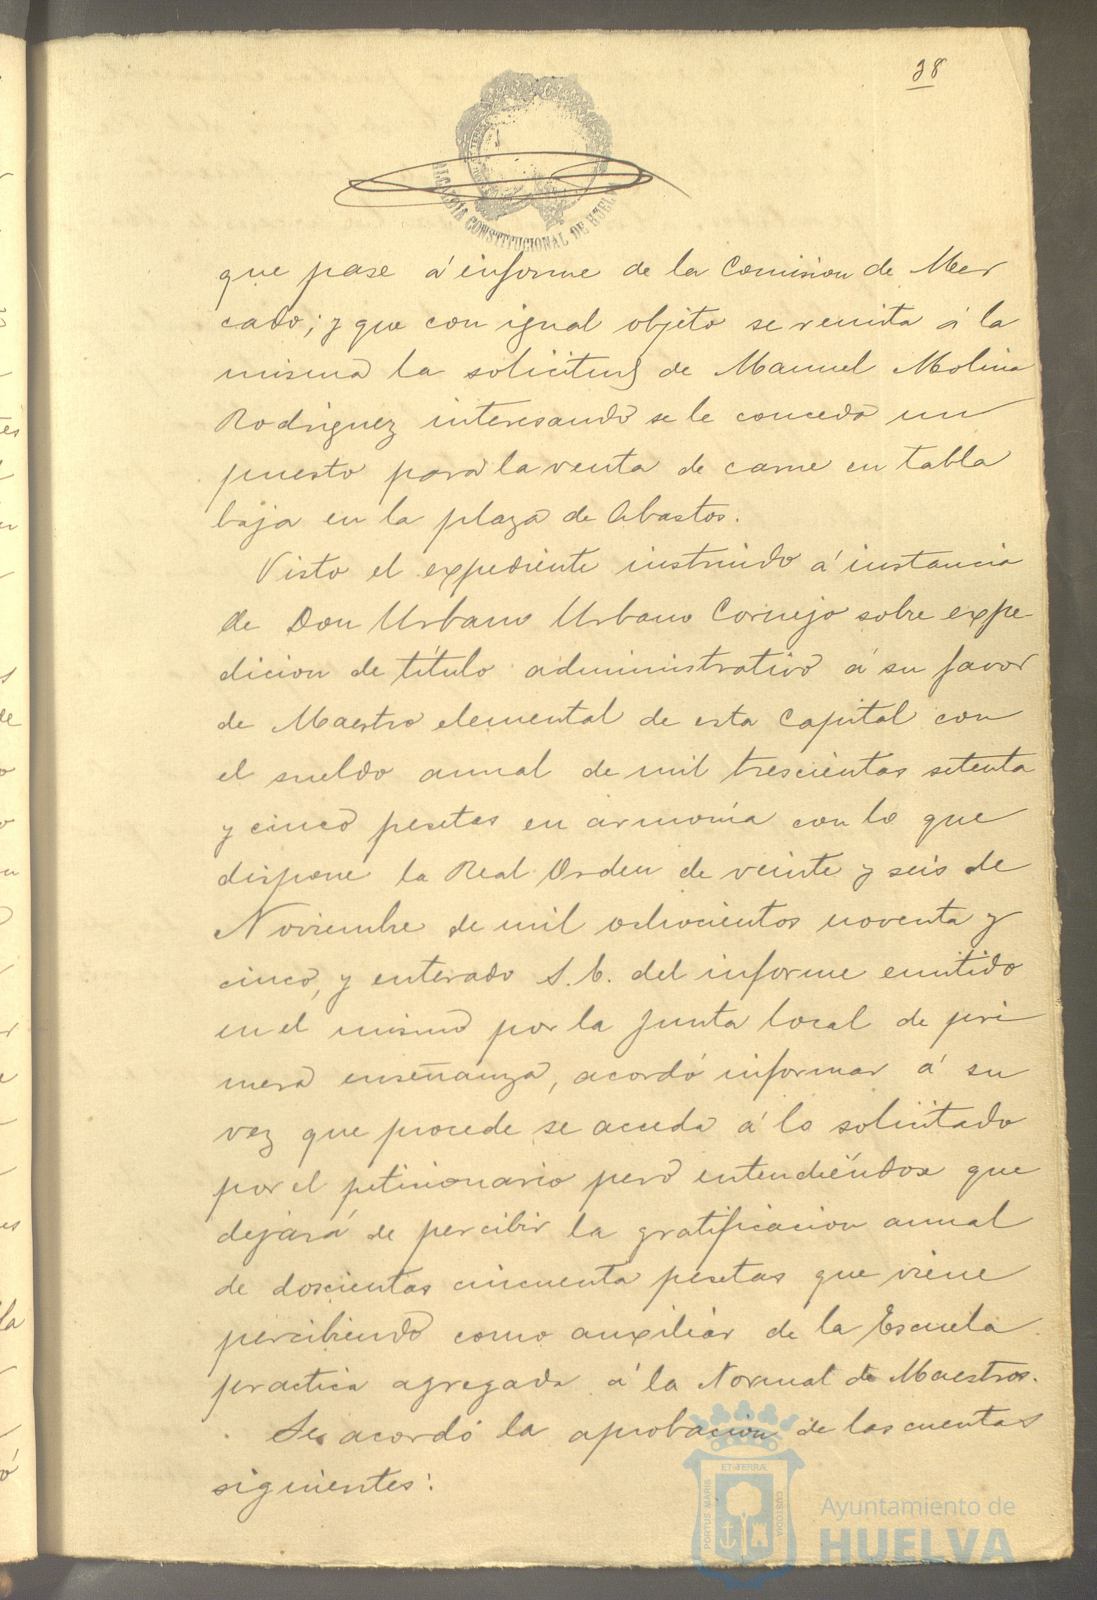 38
ALCALDIA CONSTITUCIONAL DE HUELVA
que pase á informe de la Comision de Mer
cado; y que con igual objeto se remita á la
misma la solicitud de Manuel Molina
Rodriguez interesando se le conceda un
puesto para la venta de carne en tabla
baja en la plaza de Abastos.
Visto el expediente instruido á instancia
de Don Urbano Urbano Cornejo sobre expe
dicion de título administrativo á su favor
de Maestro elemental de esta Capital con
el sueldo anual de mil trescientas setenta
y cinco pesetas en armonía con lo que
dispone la Real Orden de veinte y seis de
Noviembre de mil ochocientos noventa y
cinco, y enterado S. C. del informe emitido
en el mismo por la Junta local de pri
mera enseñanza, acordó informar á su
vez que procede se acceda á lo solicitado
por el peticionario pero entendiéndose que
dejará de percibir la gratificacion anual
de doscientas cincuenta pesetas que viene
percibiendo como auxiliar de la Escuela
practica agregada á la Normal de Maestros.
Se acordó la aprobacion de las cuentas
siguientes:
ET TERRÆ
PORTUS MARIS
CUSTODIA
Ayuntamiento de
HUELVA